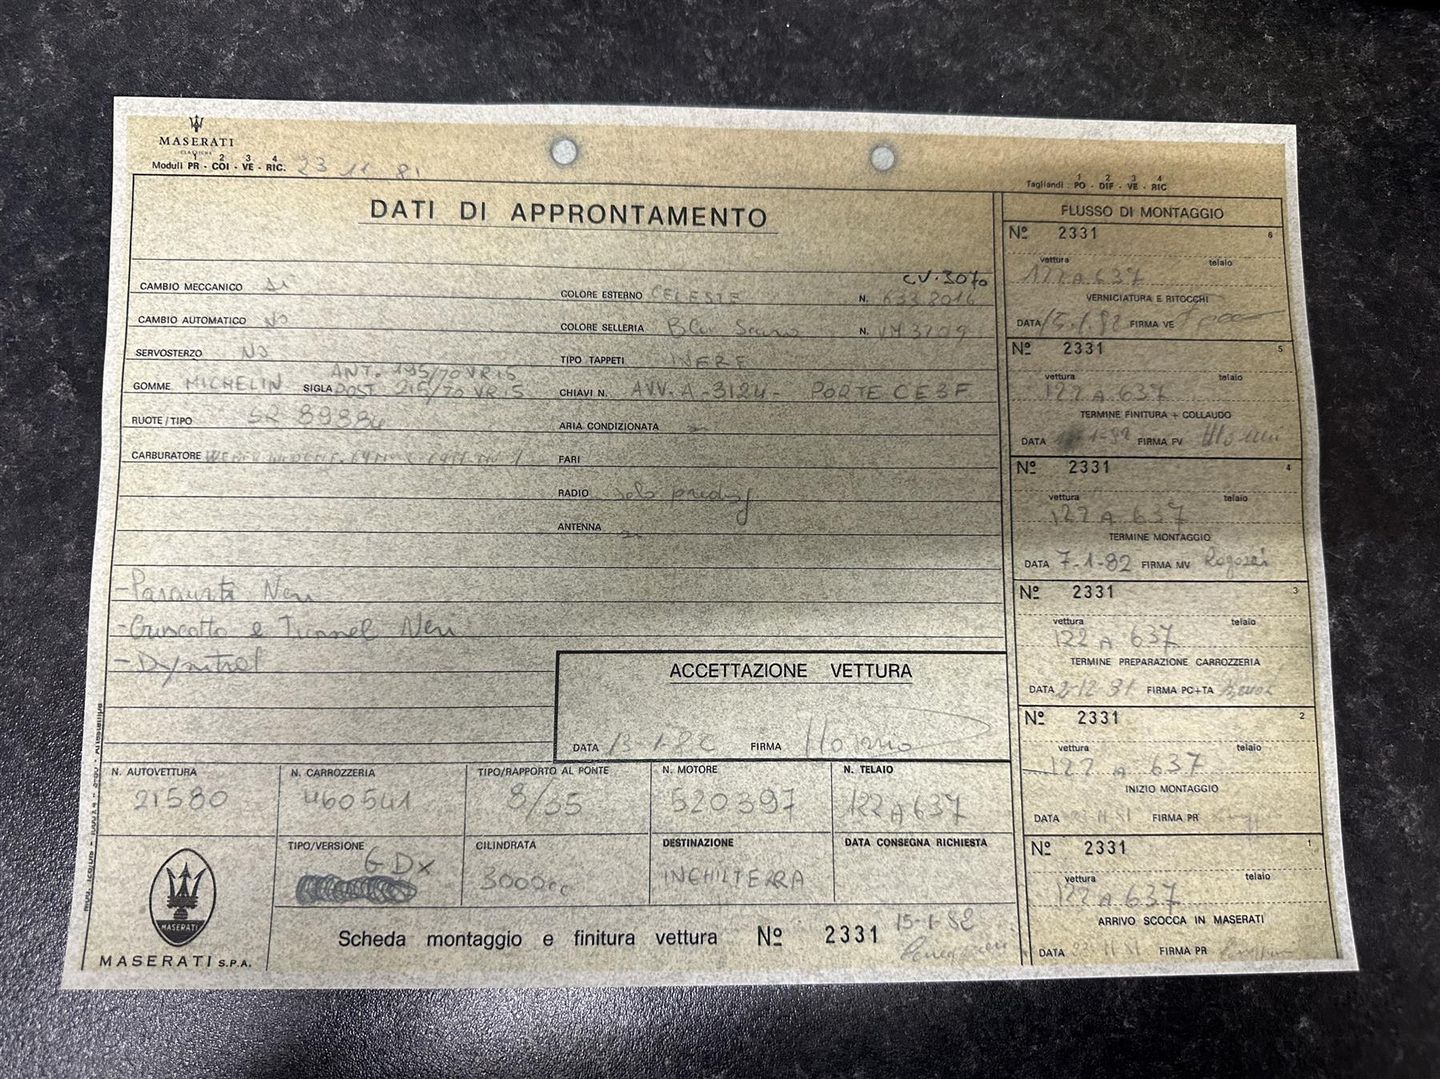 MASERATI
CLASSICHE
1 2 3 4
Moduli PR - COI - VE - RIC. 23 11 81
DATI DI APPRONTAMENTO
CAMBIO MECCANICO Si
CAMBIO AUTOMATICO NO
SERVOSTERZO NO
ANT. 195/70 VR 15
GOMME MICHELIN SIGLA POST 215/70 VR 15
RUOTE / TIPO
CARBURATORE WEBER
CV. 30%
COLORE ESTERNO CELESTE N. 633 2016
COLORE SELLERIA Blu Scuro N. VM 3209
TIPO TAPPETI NERE
CHIAVI N. AVV. A - 3124 - PORTE CE3F
ARIA CONDIZIONATA
FARI
RADIO solo
ANTENNA
- Neri
- Cruscotto e Tunnel Neri
- Dynitrol
ACCETTAZIONE VETTURA
DATA 13-1-82 FIRMA
N. AUTOVETTURA
21580
N. CARROZZERIA
460541
TIPO/RAPPORTO AL PONTE
8/35
N. MOTORE
520397
N. TELAIO
122 A 637
TIPO/VERSIONE
GDX
CILINDRATA
3000cc
DESTINAZIONE
INGHILTERRA
DATA CONSEGNA RICHIESTA
MASERATI
MASERATI S.P.A.
Scheda montaggio e finitura vettura Nº 2331 15-1-82
1 2 3 4
Tagliandi : PO - DIF - VE - RIC
FLUSSO DI MONTAGGIO
Nº 2331 6
vettura telaio
122 A 637
VERNICIATURA E RITOCCHI
DATA 15.1.82 FIRMA VE
Nº 2331 5
vettura telaio
122 A 637
TERMINE FINITURA + COLLAUDO
DATA 1-82 FIRMA FV
Nº 2331 4
vettura telaio
122 A 637
TERMINE MONTAGGIO
DATA 7-1-82 FIRMA MV
Nº 2331 3
vettura telaio
122 A 637
TERMINE PREPARAZIONE CARROZZERIA
DATA 2-12-81 FIRMA PC+TA
Nº 2331 2
vettura telaio
122 A 637
INIZIO MONTAGGIO
DATA 23-11-81 FIRMA PR
Nº 2331 1
vettura telaio
122 A 637
ARRIVO SCOCCA IN MASERATI
DATA 23-11-81 FIRMA PR